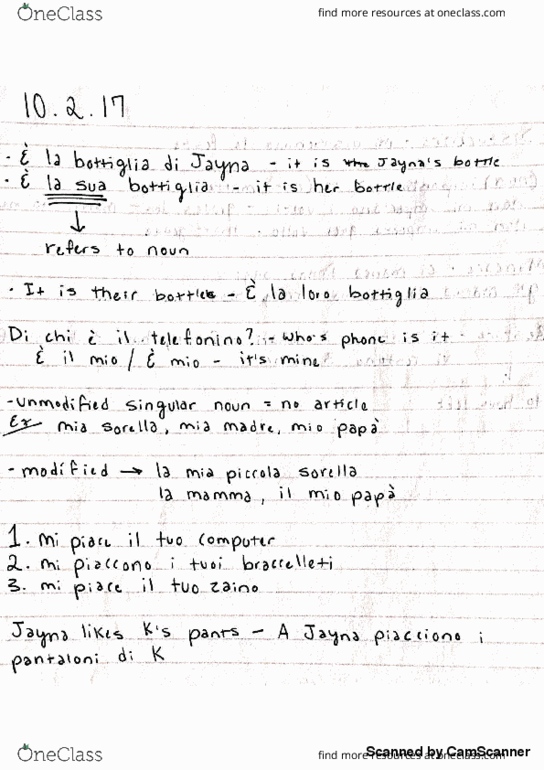 OneClass
find more resources at oneclass.com
10.2.17
· È la bottiglia di Jayna - it is the Jayna's bottle
· È la sua bottiglia - it is her bottle
refers to noun
· It is their bottle - È la loro bottiglia
Di chi è il telefonino? - Who's phone is it
È il mio / È mio - it's mine
- unmodified singular noun = no article
Ex mia sorella, mia madre, mio papà
- modified → la mia piccola sorella
la mamma, il mio papà
1. mi piace il tuo computer
2. mi piaccono i tuoi braccelleti
3. mi piace il tuo zaino
Jayna likes K's pants - A Jayna piacciono i
pantaloni di K
OneClass
find more resources at oneclass.com
Scanned by CamScanner